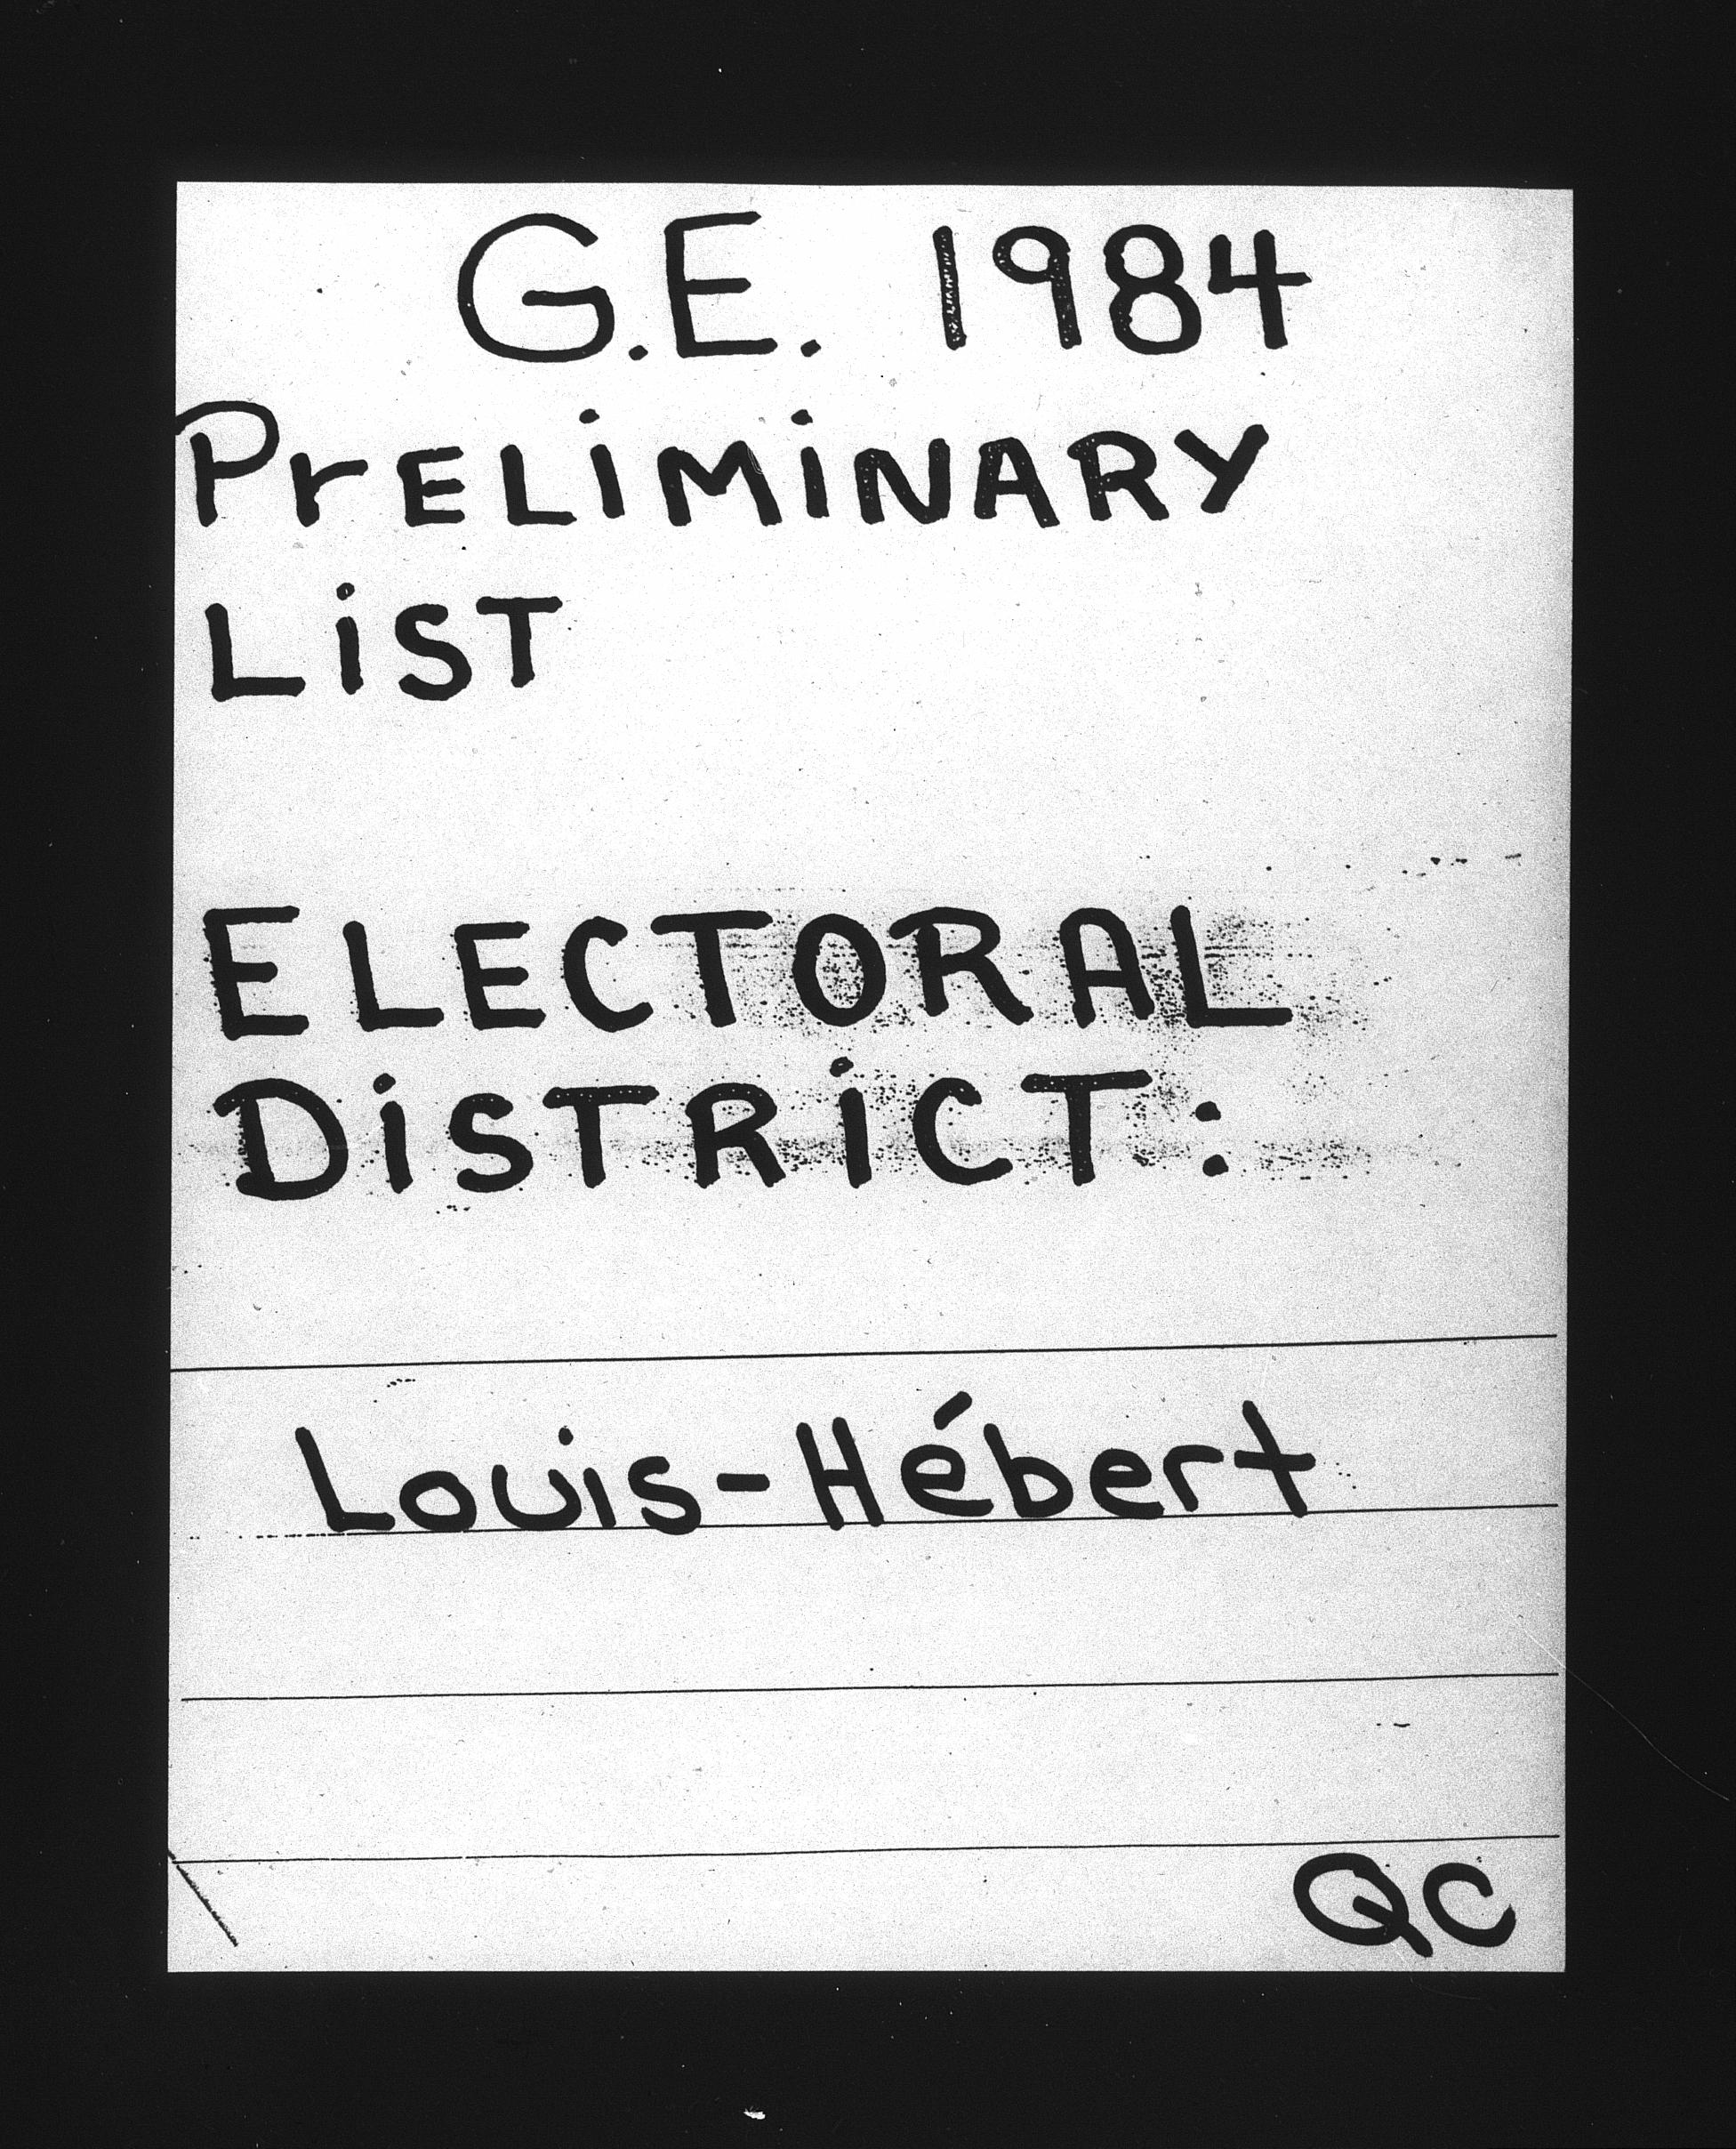 G.E. 1984
PRELIMINARY
LIST
ELECTORAL
DISTRICT:
Louis-Hébert
QC